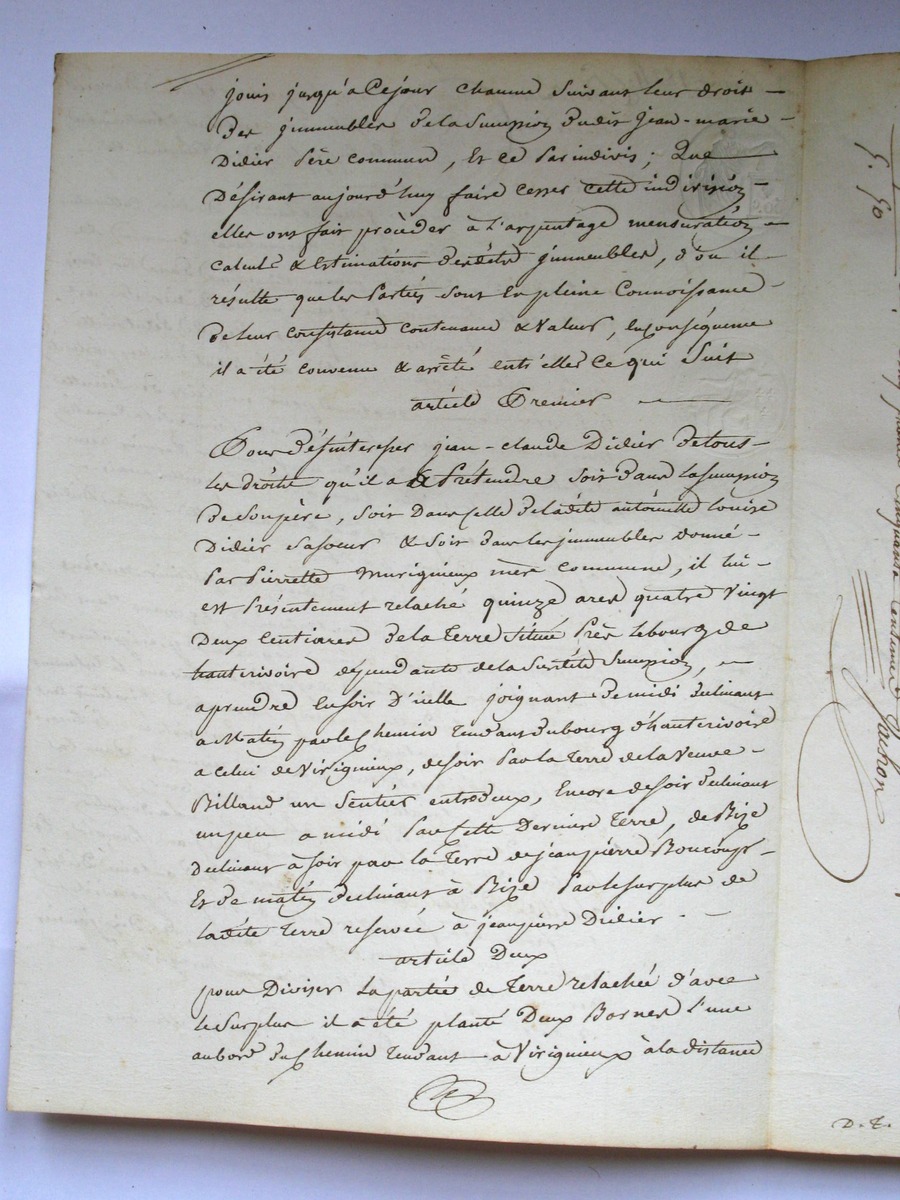 jouis jusqu'a Ce jour chacune Suivant leur droit
des jmmeubles de la Succession dudit jean-marie
Didier Père commun, Et ce Par indivis; Que
Désirant aujourd'huy faire cesser cette indivision
elles ont fait procèder à l'arpentage mensuration
calculs & Estimations desdits jmmeubles, d'ou il
résulte que les Parties sont En pleine Connoissance
de leur Consistance Contenance & Valeur, En Conséquence
il a été convenu & arrêté entr'elles Ce qui Suit
article Premier
Pour désintéresser jean-claude Didier de tous
les droits qu'il a à Prétendre soit dans la Succession
de Son père, soit Dans Celle de ladite antoinette louise
Didier sa soeur & soit dans les jmmeubles donné
Par Pierrette Murigneux mère commune, il lui
est Présentement relaché quinze ares quatre Vingt
Deux Centiares de la Terre Située Près le bourg de
hauterivoire dépendante de la Susdite Succession,
a prendre En soir D'icelle joignant de midi declinant
a Matin par le Chemin Tendant du bourg d'hauterivoire
a Celui de Virigneux, de soir Par la Terre de la Veuve
Billand un Sentier entredeux, Encore de soir declinant
un peu a midi Par Cette Derniere Terre, de Bize
Declinant à Soir par la Terre de jean pierre
Et de matin declinant à Bize Par le Surplus de
ladite Terre reservée à jean pierre Didier.
article Deux
pour Diviser La partie de Terre relachée d'avec
le Surplus il a été planté Deux Bornes L'une
au bord du Chemin Tendant à Virigneux à la distance
5. 50
Cinquante Centimes
D. T.